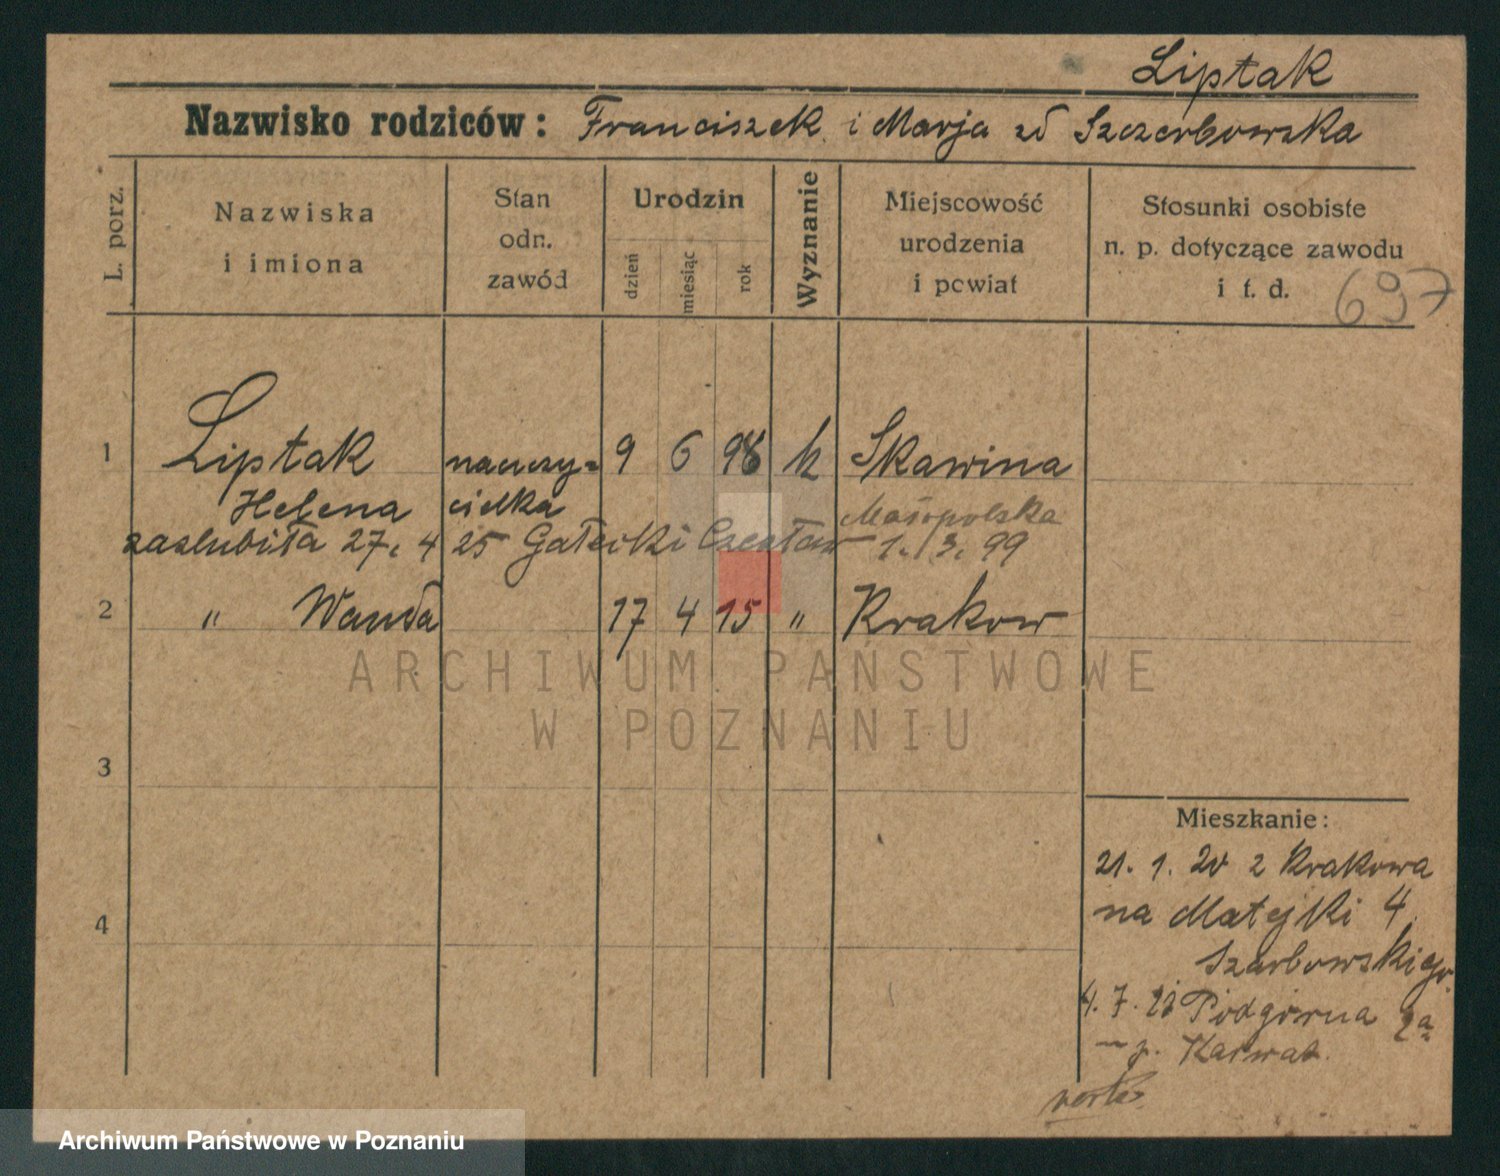 Liptak
Nazwisko rodziców: Franciszek i Marja zd Szczerbowska
L. porz.
Nazwiska
i imiona
Stan
odn.
zawód
Urodzin
dzień
miesiąc
rok
Wyznanie
Miejscowość
urodzenia
i powiat
Stosunki osobiste
n. p. dotyczące zawodu
i t. d.
697
1 Liptak nauczy= 9 6 98 k Skawina
Helena cielka Małopolska
zaslubiła 27. 4 25 Gałecki Czesław 1. 3. 99
2 " Wanda 17 4 15 " Krakow
ARCHIWUM PAŃSTWOWE
W POZNANIU
3
4
Mieszkanie:
21. 1. 20 z Krakowa
na Matejki 4
4. 7. Podgórna 2a
Karwat.
Archiwum Państwowe w Poznaniu